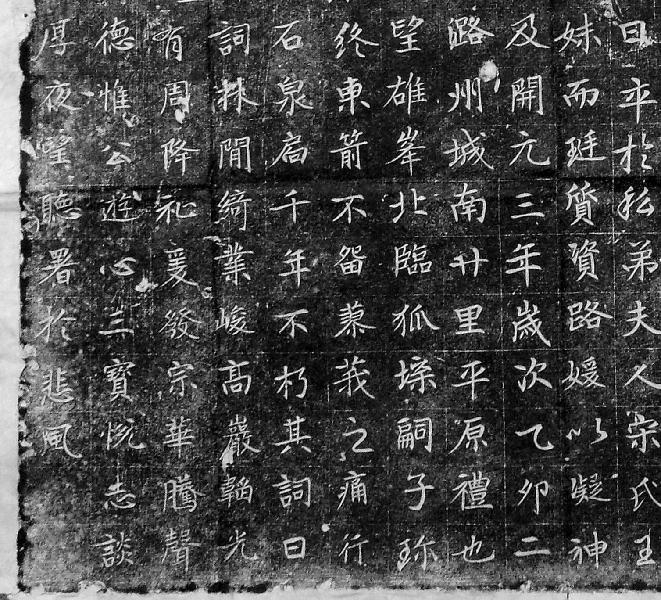 日卒於私弟夫人宋氏王
妹而琁質資路媛以凝神
及開元三年歲次乙卯二
潞州城南廿里平原禮也
望雄峯北臨狐堔嗣子珎
終東箭不留蓼莪之痛行
石泉扃千年不朽其詞曰
詞林閒綺業峻高巖韜光
有周降祉爰發宗華騰聲
德惟公遊心三寶悅志談
厚夜望聽署於悲風